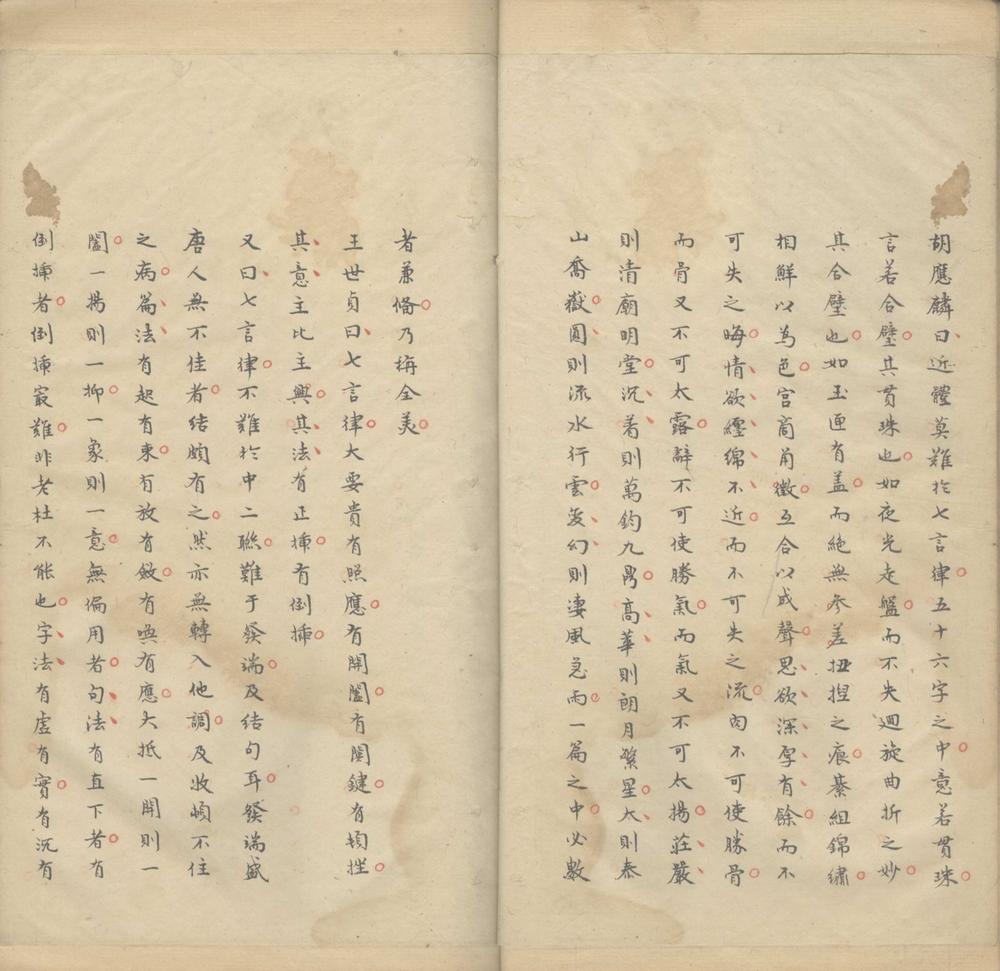 胡應麟曰近體莫難於七言律五十六字之中意若貫珠
言若合璧其貫珠也如夜光走盤而不失迴旋曲折之妙
其合璧也如玉匣有盖而絕無參差扭揑之痕綦組錦繡
相鮮以為色宮商角徵互合以成聲思欲深厚有餘而不
可失之晦情欲纏綿不近而不可失之流肉不可使勝骨
而骨又不可太露辭不可使勝氣而氣又不可太揚莊嚴
則清廟明堂沉着則萬鈞九鼎高華則朗月繁星大則泰
山喬嶽圓則流水行雲変幻則淒風急雨一篇之中必數
者兼俻乃稱全美
王世貞曰七言律大要貴有照應有開闔有關鍵有頓挫
其意主比主興其法有正揷有倒揷
又曰七言律不難於中二聮難于發端及结句耳發端盛
唐人無不佳者结頗有之然亦無轉入他調及收頓不住
之病篇法有起有束有放有斂有喚有應大抵一開則一
闔一揚則一抑一象則一意無偏用者句法有直下者有
倒揷者倒揷最難非老杜不能也字法有虛有實有沉有